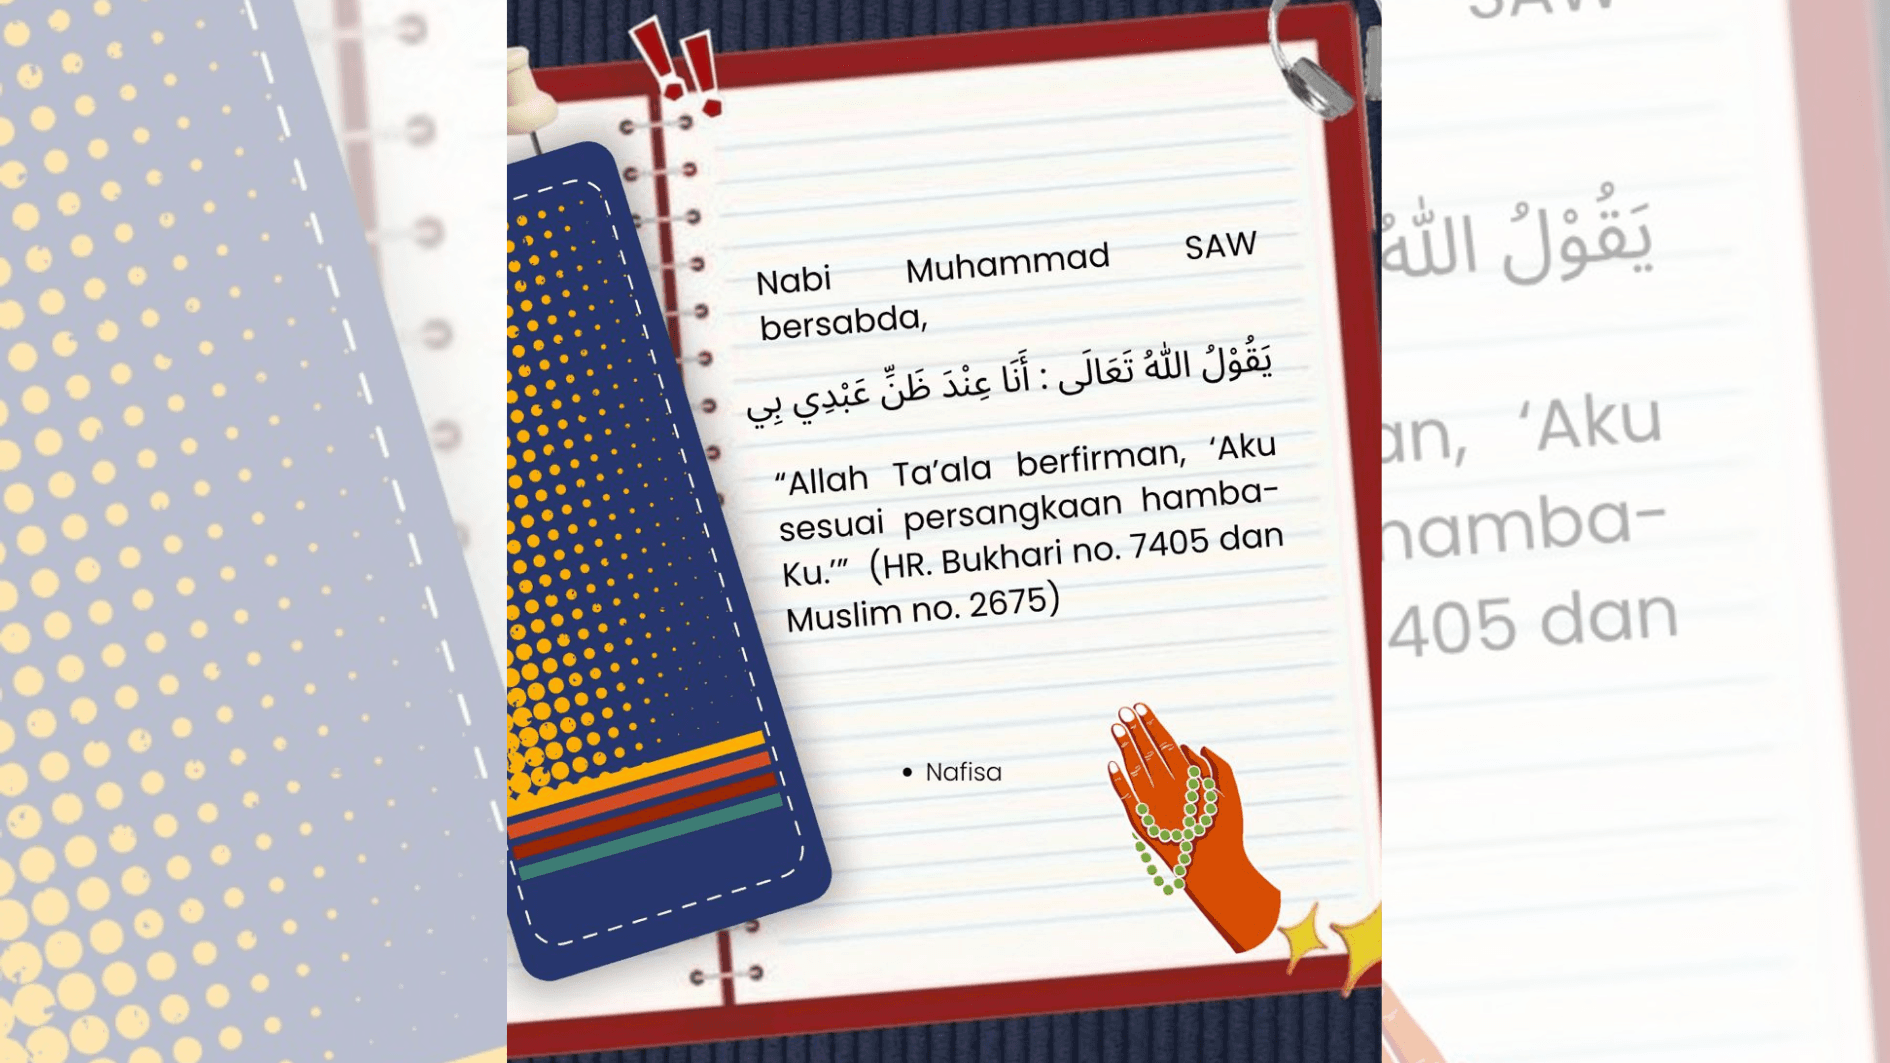 Nabi Muhammad SAW
bersabda,
يَقُوْلُ اللّٰهُ تَعَالَى : أَنَا عِنْدَ ظَنِّ عَبْدِي بِي
“Allah Ta’ala berfirman, ‘Aku
sesuai persangkaan hamba-
Ku.’” (HR. Bukhari no. 7405 dan
Muslim no. 2675)
• Nafisa
SAW
يَقُوْلُ اللّٰهُ
an, ‘Aku
hamba-
405 dan